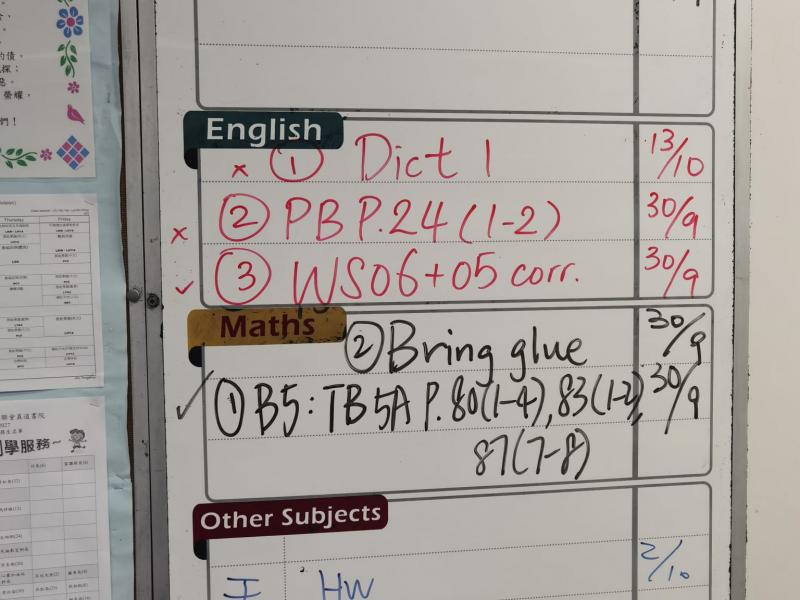 English
× ① Dict 1 13/10
× ② PB P.24 (1-2) 30/9
✓ ③ WS06+05 corr. 30/9
Maths
② Bring glue 30/9
✓ ① B5: TB 5A P. 80(1-4), 83(1-2), 30/9
87(7-8)
Other Subjects
I HW 2/10
榮耀,
們!
Thursday Friday
學服務~